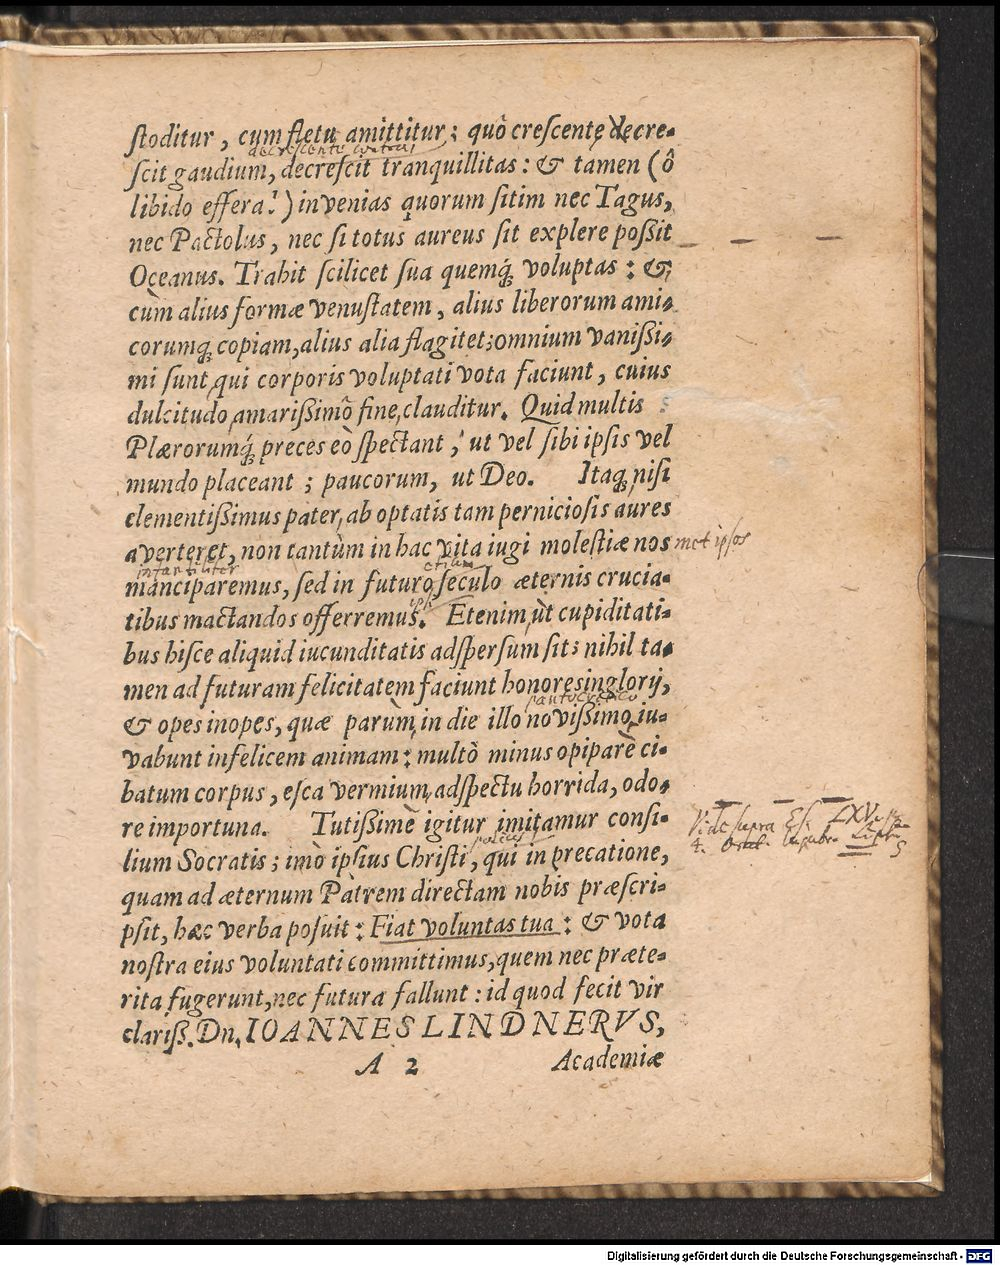 ſtoditur, cum fletu amittitur; quô creſcente decre-
ſcit gaudium, decreſcit tranquillitas: & tamen (ô
libido effera!) invenias quorum ſitim nec Tagus,
nec Pactolus, nec ſi totus aureus ſit explere poſſit
Oceanus. Trahit ſcilicet ſua quemq́; voluptas: &
cùm alius formæ venuſtatem, alius liberorum ami-
corumq; copiam, alius alia flagitet; omnium vaniſſi-
mi ſunt qui corporis voluptati vota faciunt, cuius
dulcitudo amariſſimô fine clauditur. Quid multis
Plærorumq́; preces eò ſpectant, ut vel ſibi ipſis vel
mundo placeant; paucorum, ut Deo. Itaq; niſi
clementiſſimus pater ab optatis tam pernicioſis aures
averteret, non tantùm in hac vita iugi moleſtiæ nos met ipſos
manciparemus, ſed in futuro ſeculo æternis crucia-
tibus mactandos offerremus. Etenim ùt cupiditati-
bus hiſce aliquid iucunditatis adſperſum ſit; nihil ta-
men ad futuram felicitatem faciunt honores inglorij,
& opes inopes, quæ parùm in die illo noviſſimo iu-
vabunt infelicem animam: multò minus opiparè ci-
batum corpus, eſca vermium, adſpectu horrida, odo-
re importuna. Tutiſſimè igitur imitamur conſi-
lium Socratis; imò ipſius Chriſti, qui in precatione,
quam ad æternum Patrem directam nobis præſcri-
pſit, hæc verba poſuit: Fiat voluntas tua: & vota
noſtra eius voluntati committimus, quem nec præte-
rita fugerunt, nec futura fallunt: id quod fecit vir
clariſſ. Dn. IOANNES LINDNERVS,
A 2 Academiæ
Digitalisierung gefördert durch die Deutsche Forschungsgemeinschaft - DFG